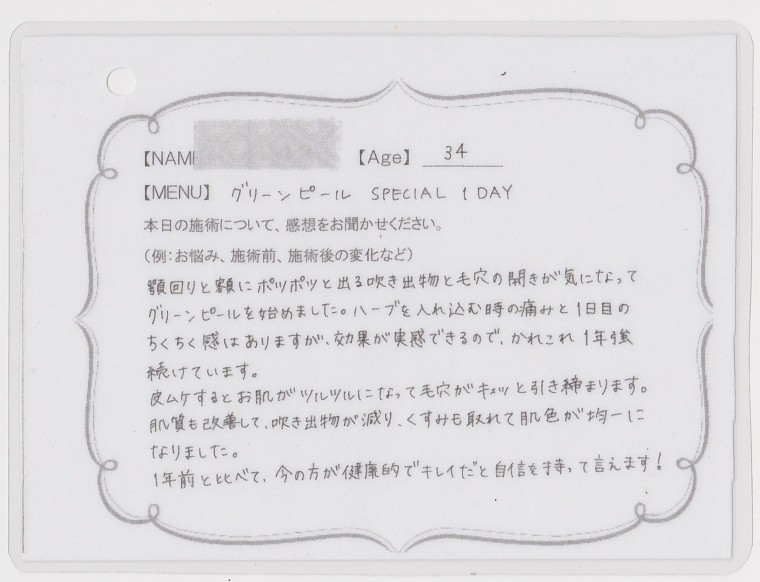 【NAM 【Age】 34
【MENU】 グリーンピール SPECIAL 1 DAY
本日の施術について、感想をお聞かせください。
（例：お悩み、施術前、施術後の変化など）
顎回りと額にポツポツと出る吹き出物と毛穴の開きが気になって
グリーンピールを始めました。ハーブを入れ込む時の痛みと1日目の
ちくちく感はありますが、効果が実感できるので、かれこれ1年強
続けています。
皮ムケするとお肌がツルツルになって毛穴がキュッと引き締まります。
肌質も改善して、吹き出物が減り、くすみも取れて肌色が均一に
なりました。
1年前と比べて、今の方が健康的でキレイだと自信を持って言えます!